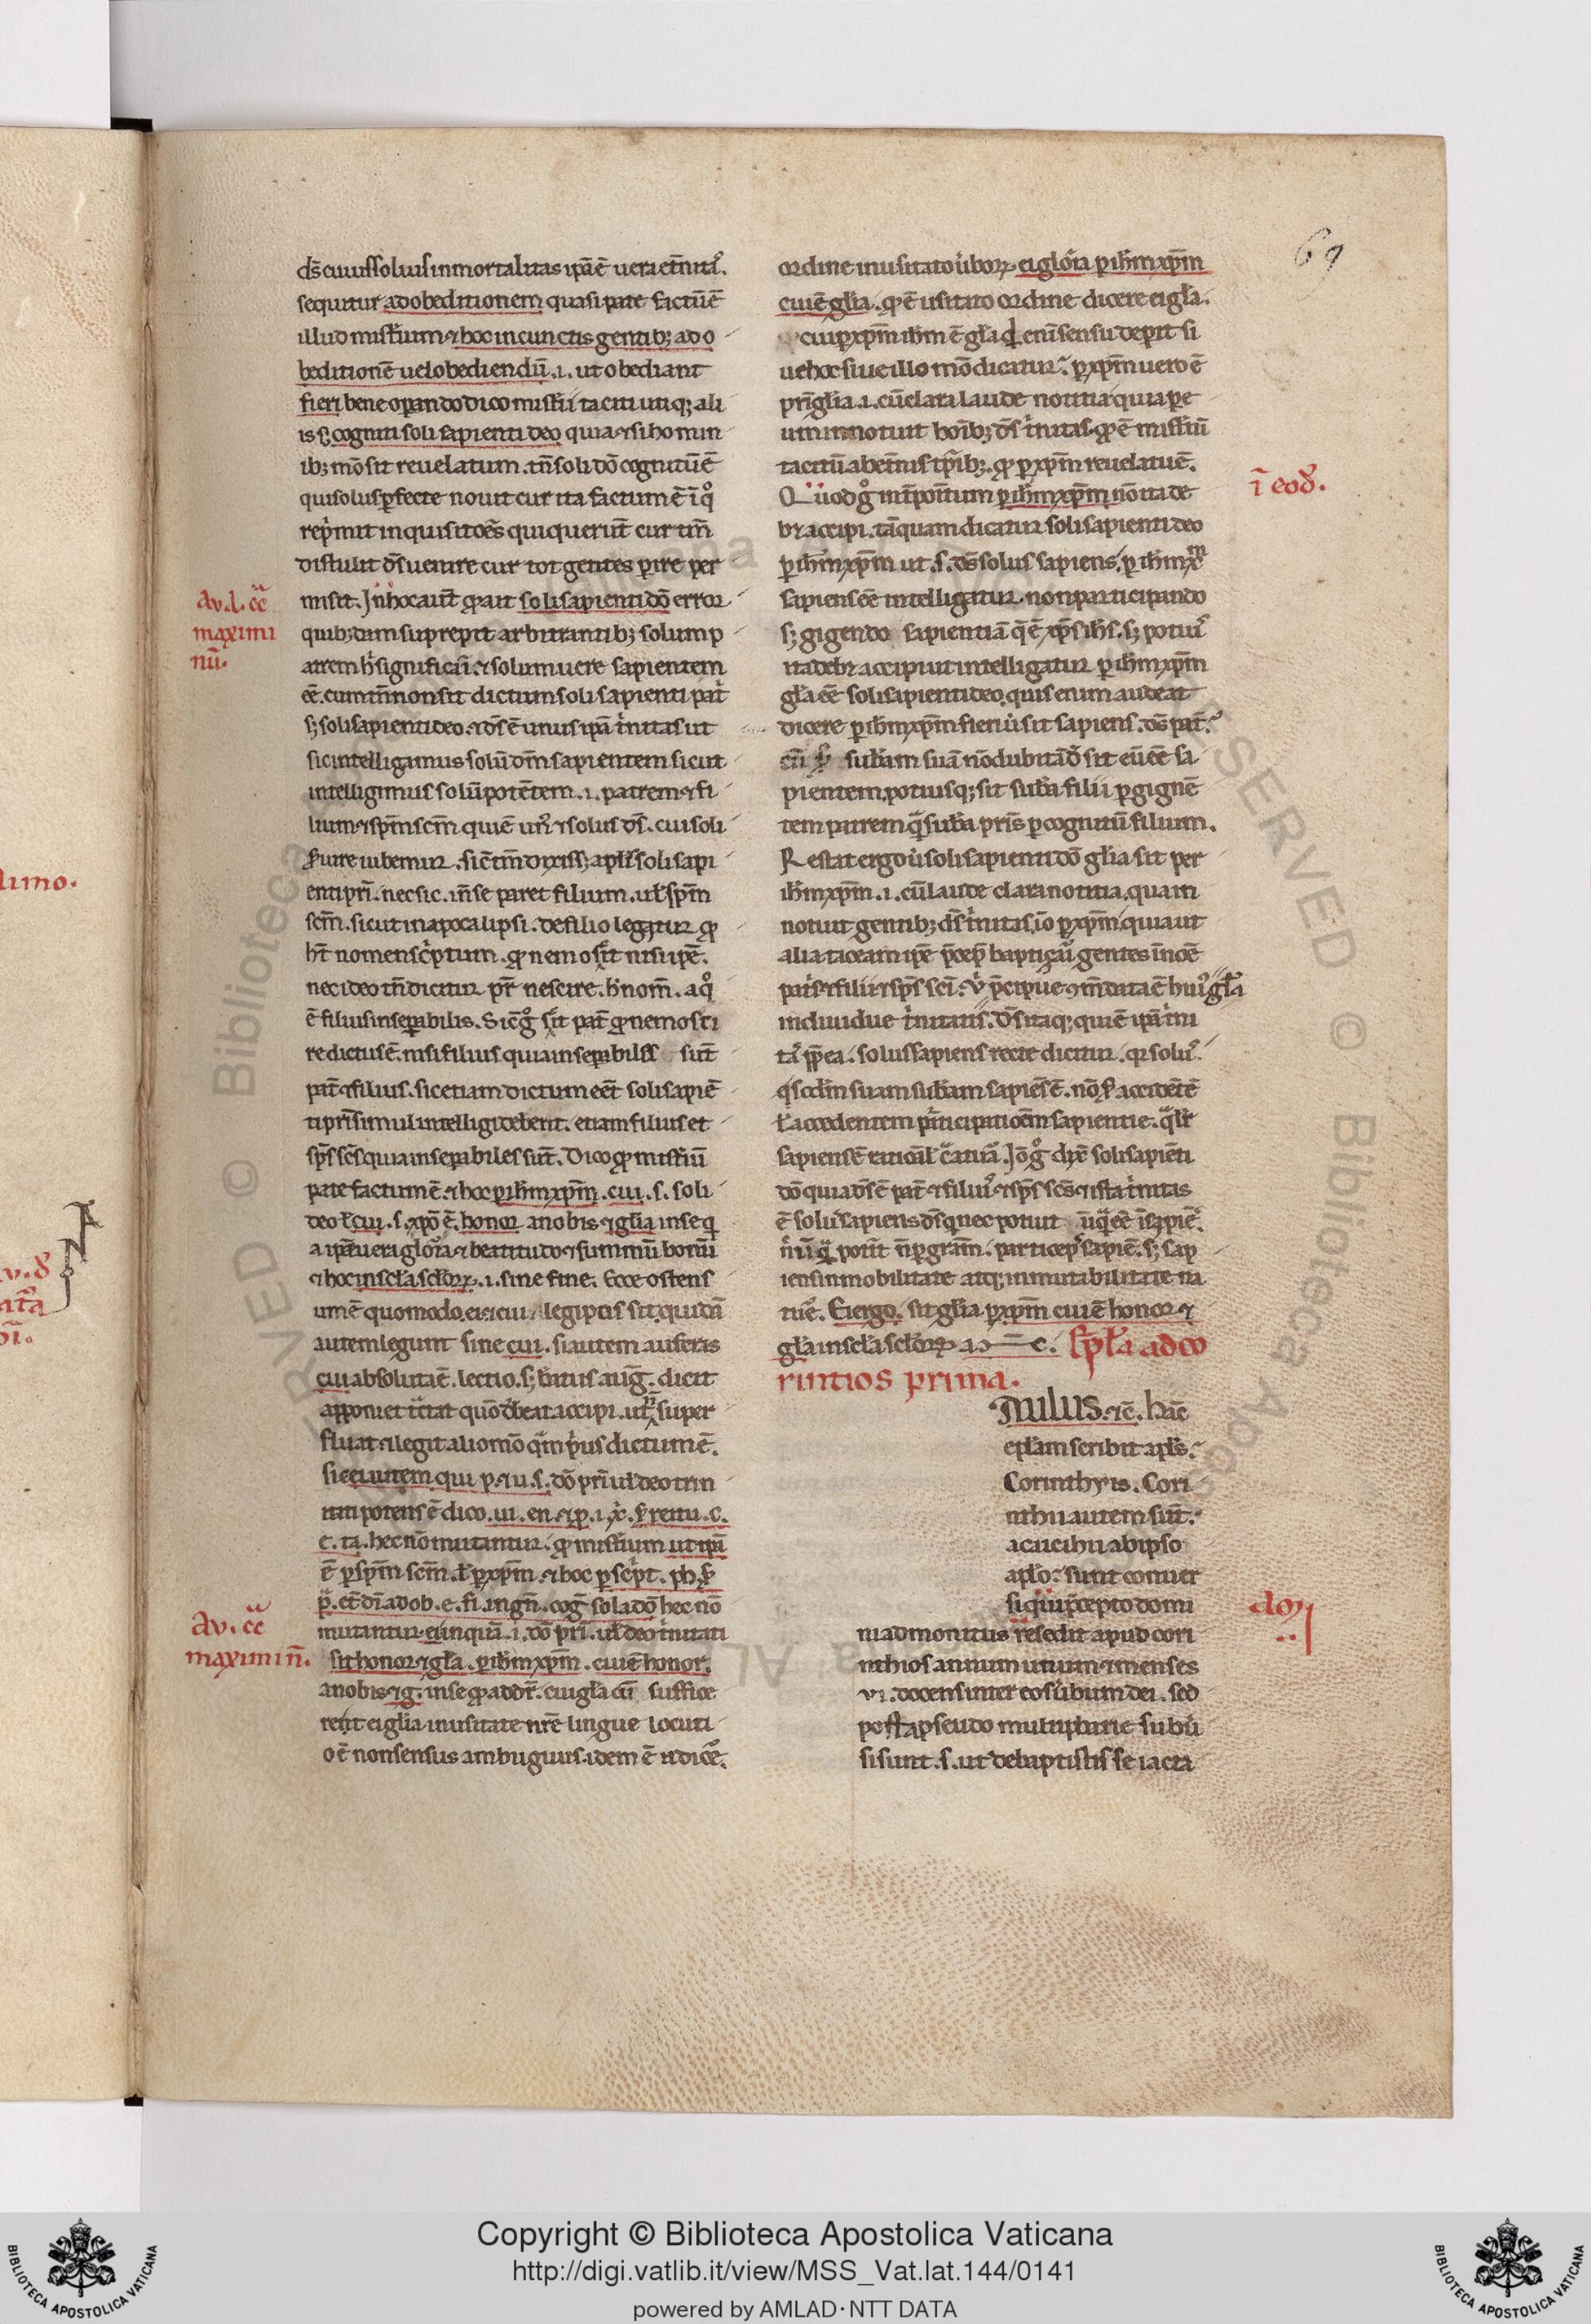 69
ds̄ cuius solius inmortalitas ipa ē uera et̄nitas.
sequitur ad obeditionem quasi pate factū ē
illud mist̄ium ⁊ hoc in cunctis gentib; ad o
beditionē uel obediendū .i. ut obediant
fieri bene operando dico mist̄ii taciti utiq; ali
is s; cogniti soli sapienti deo quia ⁊ si homin
ib; mō sit reuelatum. tn̄ soli dō cognitū ē
qui solus ꝑfecte nouit cur ita factum ē
rep̄mit inquisitōes qui querūt cur tm̄
distulit ds̄ uenire cur tot gentes ꝑire per
misit. In hoc aut̄ ꝙ ait soli sapienti dō error
quib;dam suprepit arbitrantib; solum p
atrem h̄ significari ⁊ solum uere sapientem
ēē. cum tn̄ non sit dictum soli sapienti pat̄
s; soli sapienti deo. ⁊ ds̄ ē unus ipa t̄nitas ut
sic intelligamus solū dm̄ sapientem sicut
intelligimus solū potētem .i. patrem ⁊ fi
lium ⁊ spm̄ scm̄ qui ē un᷒ ⁊ solus ds̄. cui soli
seruire iubemur. si ēt̄m dixiss; apls̄ soli sapi
enti pri̅. nec sic. inse paret filium. ul̄ spm̄
scm̄. sicut in apocalipsi. de filio legatur ꝙ
ht̄ nomen sc̄ptum. ꝙ nemo scit nisi ipē.
nec ideo tn̄ dicitur pr̄ nescire. h̄ nom̄. a q°
ē filius inseꝑabilis. Sic g° sit pat̄ ꝙ nemo sci
re dictus ē. nisi filius quia inseꝑabiles sūt
pat̄ ⁊ filius. sic etiam dictum eēt soli sapiē
ti pri̅ simul intelligi deberit. etiam filius et
sps̄ scs̄ quia inseꝑabiles sūt. Dico ꝙ mist̄iū
pate factum ē. ⁊ hoc ꝑ ihm̄ xpm̄. cui .s. soli
deo ł cui .s. xpō ē. honor a nobis ⁊ gl̄ia in se q
a ipā ē uera gloria ⁊ beatitudo ⁊ summū bonū
⁊ hoc in scl̄a scl̄oꝝ .i. sine fine. Ecce ostens
um ē quomodo. ei ⁊ cui legiptis sit. quidā
autem legunt sine cui. si autem auferas
cui absoluta ē. lectio. s; beatus auḡ. dicit
apponi et t̄ctat quō debeat accipi. ut n̄ super
fluat ⁊ legit alio mō qm̄ prius dictum ē.
sic ei autem qui p. ⁊ u. s. dō pri̅ ul̄ deo trin
itati potens ē dico. ui. en. ⁊ p. i. x̄. s̄ retiu. c.
e. ta. hec nō mutantur. ꝙ mist̄ium ut ipā
ē ꝑ spm̄ scm̄. ł ꝑ xpm̄. ⁊ hoc ꝑ sc̄pt. ph̄
p̄. et̄ di̅ ad ob. e. fi. in gn̄. cog̅ sola dō hec nō
mutantur. ei inquā .i. dō pri̅. ul̄ deo t̄nitati
sit honor ⁊ gl̄a. ꝑ ihm̄ xpm̄. cui ē honor.
a nobis ⁊ g. in se ꝙ addr̄. cui gl̄a cū suffice
rent ei gl̄ia inusitate nr̄e lingue locuti
o ē non sensus ambiguus. idem ē n̄ dicē.
au. l. cc̄
maximi
nū.
au. cc̄
maximin̄.
ordine inusitato ūboꝝ. ei glōa ꝑ ihm̄ xpm̄
cui ē gl̄ia. ꝙ ē usitato ordine dicere ei gl̄a.
cui ꝑ xpm̄ ihm̄ ē gl̄a q̄ eni̅ sensu depit si
ue hoc siue illo mō dicatur. ꝑ xpm̄ uero ē
pri̅ gl̄ia .i. cū clara laude notitia quia ꝑ e
um innotuit hoīb; ds̄ t̄nitas. ꝙ ē mist̄iū
tacitū ab et̄nis tp̄ib;. ꝙ ꝑ xpm̄ reuelatu ē.
Quod g° int̄positum ꝑ ihm̄ xpm̄ nō ita de
bz accipi. tāquam dicatur soli sapienti deo
ꝑ ihm̄ xpm̄ ut .s. ds̄ solus sapiens. ꝑ ihm̄ x̄m
sapiens ēē intelligatur. non participando
s; gigendo sapientiā q̄ ē xps̄ ihs̄. s; potius
ita debz accipi ut intelligatur ꝑ ihm̄ xpm̄
gl̄a ēē soli sapienti deo. quis enim audeat
dicere ꝑ ihm̄ xpm̄ fieri ut sit sapiens. ds̄ pat̄.
cū s̄ subam suā nō dubitādū sit eū ēē sa
pientem. potiusq; sit suba filii ꝑ gignē
tem patrem q̄ suba pris̄ ꝑ cognitū filium.
Restat ergo ut soli sapienti dō gl̄ia sit per
ihm̄ xpm̄ .i. cū laude clara notitia. quam
notuit gentib; ds̄ t̄nitas. iō ꝑ xpm̄ quia ut
alia taceam ipē p̄cep̄ baptizari gentes in nōē
patris ⁊ filii ⁊ sps̄ sci̅. ubi p̄cipue 9m̄data ē hui᷒ gl̄a
indiuidue t̄nitatis. Ds̄ itaq; qui ē ipa t̄ni
tas ꝓpt̄ea. solus sapiens recte dicitur. quia sol᷒.
q̄ scdm̄ suam subam sapiēs ē. nō s̄ accidētē
ł accedentem p̄ticipatiōem sapientie. q̄lr̄
sapiens ē rational̄ c̄atura. Iō g° dixē soli sapiēti
dō quia ds̄ ē pat̄ ⁊ fili᷒ ⁊ sps̄ scs̄ ⁊ ista t̄nitas
ē solus sapiens ds̄ q̄ nec potuit ūq̄ ēē isapiēs.
n̄ potit n̄ ꝑ gram̄. particeps sapiē. s; sap
iens inmobilitate atq; inmutabilitate na
ture. Ei ergo. sit gl̄ia ꝑ xpm̄ cui ē honor ⁊
gl̄a in scl̄a scl̄oꝝ am̄e. Epl̄a ad co
rintios prima.
PAULUS. ⁊c̄. Hāc
epl̄am scribit apls̄.
Corinthyis. Cori
nthii autem sūt.
acaci hii ab ipso
aplō. sunt conuer
si qui p̄cepto domi
ni admonitus resedit apud cori
nthios annum unum ⁊ menses
vi. docens inter eos ūbum dei. sed
post a pseudo multipharie subū
si sunt .s. ut de baptistis se iacta
ī eod̄.
Copyright © Biblioteca Apostolica Vaticana
http://digi.vatlib.it/view/MSS_Vat.lat.144/0141
powered by AMLAD·NTT DATA
BIBLIOTECA APOSTOLICA VATICANA
BIBLIOTECA APOSTOLICA VATICANA